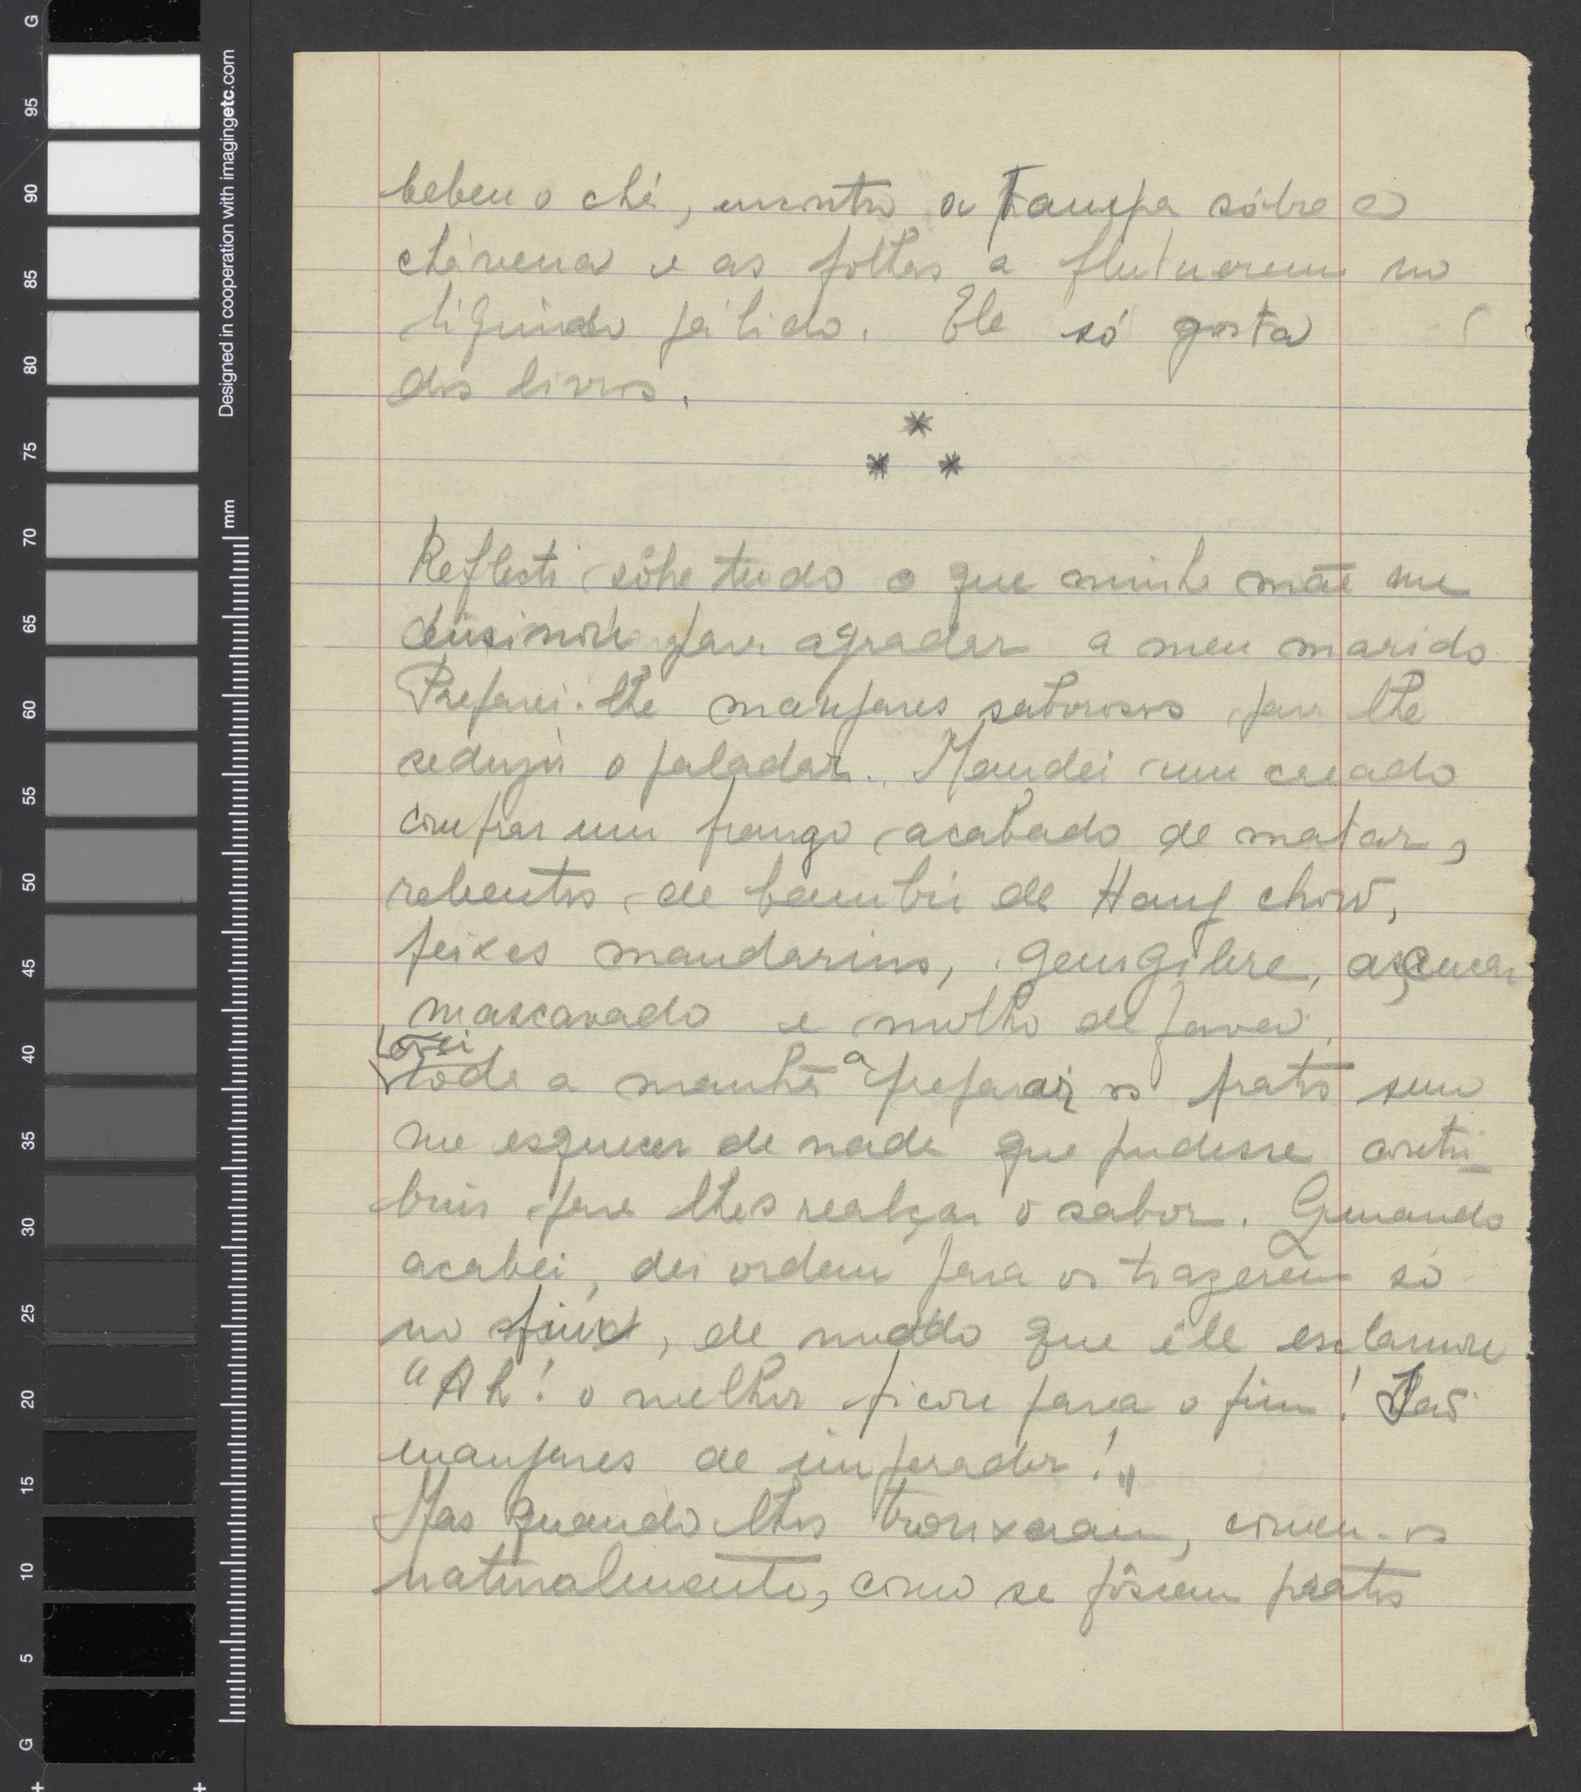 bebeu o chá, encontro a tampa sôbre a
chávena e as folhas a flutuarem no
líquido pálido. Ele só gosta
dos livros.
* * *
Reflecti sôbre tudo o que minha mãe me
ensinou para agradar a meu marido
Preparei-lhe manjares saborosos para lhe
seduzir o paladar. Mandei um creado
comprar um frango acabado de matar,
rebentos de bambú de Hang chow,
peixes mandarins, gengibre, açucar
mascavado e molho de fava.
Levei
toda a manhã a preparar os pratos sem
me esquecer de nada que pudesse contri-
buir para lhes realçar o sabor. Quando
acabei, dei ordem para os trazerem só
no fim, de modo que êle exclamou
"Ah! o melhor ficou para o fim! São
manjares de imperador!"
Mas quando lhos trouxeram, comeu-os
naturalmente, como se fôssem pratos
G
95
90
85
80
75
70
65
60
55
50
45
40
35
30
25
20
15
10
5
G
Designed in cooperation with imagingetc.com
mm